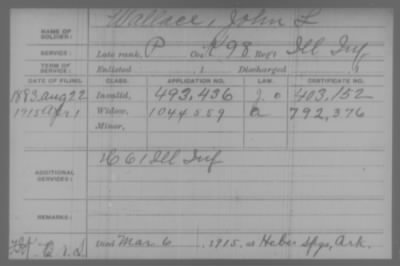 Wallace, John L
NAME OF SOLDIER:
SERVICE: Late rank, P Co. K 98 Reg't Ill Inf
TERM OF SERVICE: Enlisted , 1 Discharged , 1
DATE OF FILING. CLASS. APPLICATION NO. LAW. CERTIFICATE NO.
1883 Aug 22 Invalid, 493,436 J. 403,152
1915 Apr 1 Widow, 1044559 a 792,376
Minor,
H 61 Ill Inf
ADDITIONAL SERVICES:
REMARKS:
Died Mar. 6, 1915, at Heber Spgs, Ark.